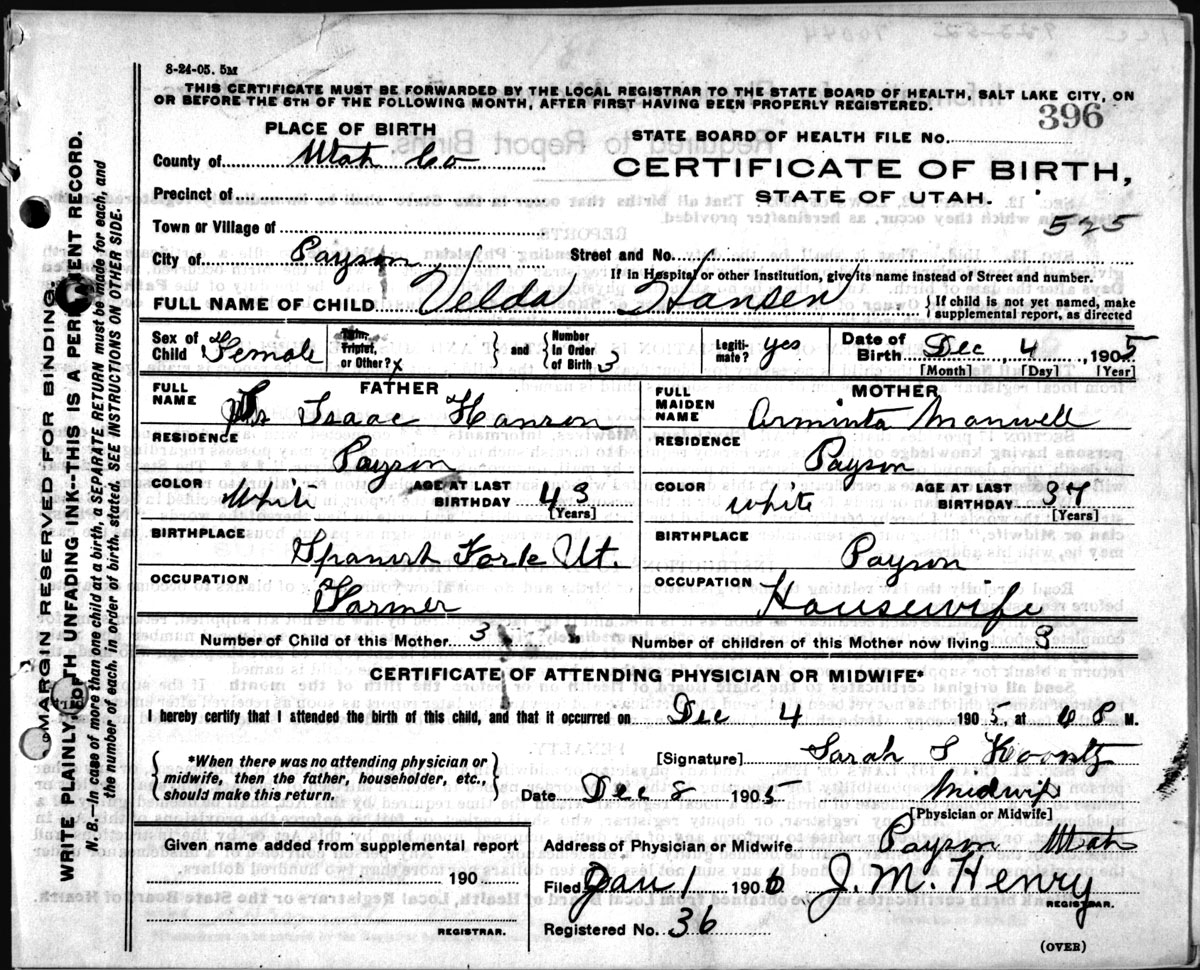 8-24-05. 5M
THIS CERTIFICATE MUST BE FORWARDED BY THE LOCAL REGISTRAR TO THE STATE BOARD OF HEALTH, SALT LAKE CITY, ON
OR BEFORE THE 5TH OF THE FOLLOWING MONTH, AFTER FIRST HAVING BEEN PROPERLY REGISTERED.
396
PLACE OF BIRTH
STATE BOARD OF HEALTH FILE No.
County of Utah Co
CERTIFICATE OF BIRTH,
Precinct of
STATE OF UTAH.
Town or Village of
525
City of Payson Street and No.
If in Hospital or other Institution, give its name instead of Street and number
FULL NAME OF CHILD Velda Hansen { If child is not yet named, make
supplemental report, as directed
Sex of Child Female Twin, Triplet, or Other? x } and { Number in Order of Birth 3 Legiti-mate? yes Date of Birth Dec, 4, 1905
[Month] [Day] [Year]
FATHER
FULL NAME Isaac Hanson
RESIDENCE
Payson
COLOR White AGE AT LAST BIRTHDAY 43
[Years]
BIRTHPLACE
Spanish Forke Ut.
OCCUPATION
Farmer
MOTHER
FULL MAIDEN NAME Arminta Manwell
RESIDENCE
Payson
COLOR white AGE AT LAST BIRTHDAY 37
[Years]
BIRTHPLACE
Payson
OCCUPATION
Housewife
Number of Child of this Mother 3 Number of children of this Mother now living 3
CERTIFICATE OF ATTENDING PHYSICIAN OR MIDWIFE*
I hereby certify that I attended the birth of this child, and that it occurred on Dec 4 1905, at 6 P M.
{ *When there was no attending physician or
midwife, then the father, householder, etc.,
should make this return. }
[Signature] Sarah S Koontz
Date Dec 8 1905 Midwife
[Physician or Midwife]
Given name added from supplemental report
190
REGISTRAR.
Address of Physician or Midwife Payson Utah
Filed Jan 1 1906 J. M. Henry
REGISTRAR.
Registered No. 36
(OVER)
MARGIN RESERVED FOR BINDING
WRITE PLAINLY WITH UNFADING INK--THIS IS A PERMANENT RECORD.
N. B.--In case of more than one child at a birth, a SEPARATE RETURN must be made for each, and
the number of each, in order of birth, stated. SEE INSTRUCTIONS ON OTHER SIDE.